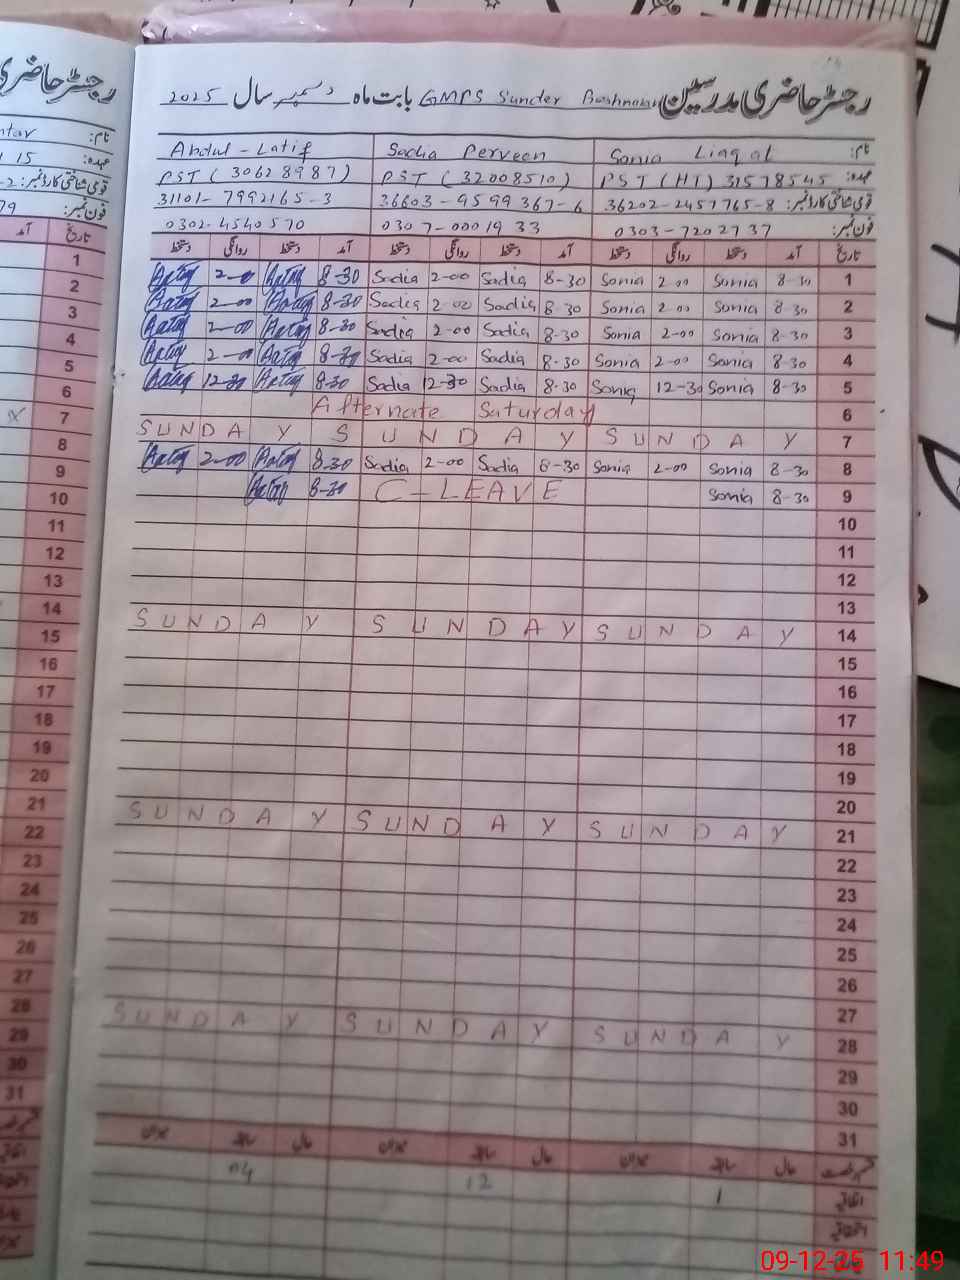 رجسٹر حاضری مدرسین GMPS Sunder بابت ماہ دسمبر سال 2025
نام: Sonia Liaqat Sadia Perveen Abdul-Latif
عہدہ: PST (HT) 31578545 PST (32008510) PST (30628987)
قومی شناختی کارڈ نمبر: 36202-2457765-8 36603-9599367-6 31101-7992165-3
فون نمبر: 0303-7202737 0307-0001933 0302-4540570
تاریخ آمد دستخط روانگی دستخط آمد دستخط روانگی دستخط آمد دستخط روانگی دستخط
1 8-30 Sonia 2-00 Sonia 8-30 Sadia 2-00 Sadia 8-30 2-00
2 8-30 Sonia 2-00 Sonia 8-30 Sadia 2-00 Sadia 8-30 2-00
3 8-30 Sonia 2-00 Sonia 8-30 Sadia 2-00 Sadia 8-30 2-00
4 8-30 Sonia 2-00 Sonia 8-30 Sadia 2-00 Sadia 8-30 2-00
5 8-30 Sonia 12-30 Sonia 8-30 Sadia 12-30 Sadia 8-30 12-30
6 Alternate Saturday
7 SUNDAY SUNDAY SUNDAY
8 8-30 Sonia 2-00 Sonia 8-30 Sadia 2-00 Sadia 8-30 2-00
9 8-30 Sonia C-LEAVE 8-30
10
11
12
13
14 SUNDAY SUNDAY SUNDAY
15
16
17
18
19
20
21 SUNDAY SUNDAY SUNDAY
22
23
24
25
26
27
28 SUNDAY SUNDAY SUNDAY
29
30
31
حال سابقہ میزان حال سابقہ میزان حال سابقہ میزان
اتفاقیہ 1 12 04
رجسٹر حاضری
نام:
عہدہ: 15
قومی شناختی کارڈ نمبر: 2-
فون نمبر: 79
تاریخ آمد
1
2
3
4
5
6
7 x
8
9
10
11
12
13
14
15
16
17
18
19
20
21
22
23
24
25
26
27
28
29
30
31
09-12-25 11:49